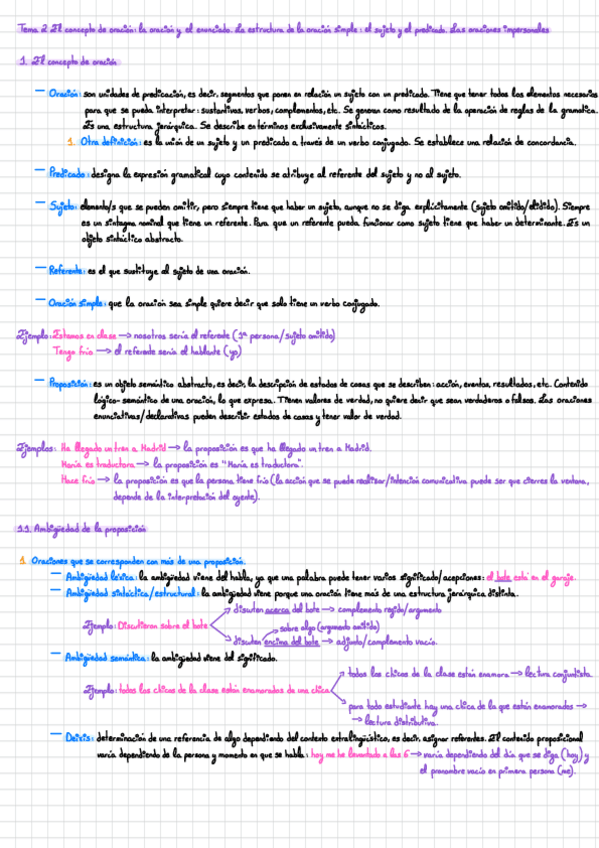 Tema 2. El concepto de oración: la oración y el enunciado. La estructura de la oración simple: el sujeto y el predicado. Las oraciones impersonales
1. El concepto de oración
— Oración: son unidades de predicación, es decir, segmentos que ponen en relación un sujeto con un predicado. Tiene que tener todos los elementos necesarios
para que se pueda interpretar: sustantivos, verbos, complementos, etc. Se generan como resultado de la operación de reglas de la gramática.
Es una estructura jerárquica. Se describe en términos exclusivamente sintácticos.
1. Otra definición: es la unión de un sujeto y un predicado a través de un verbo conjugado. Se establece una relación de concordancia.
— Predicado: designa la expresión gramatical cuyo contenido se atribuye al referente del sujeto y no al sujeto.
— Sujeto: elemento/s que se pueden omitir, pero siempre tiene que haber un sujeto, aunque no se diga explícitamente (sujeto omitido/elidido). Siempre
es un sintagma nominal que tiene un referente. Para que un referente pueda funcionar como sujeto tiene que haber un determinante. Es un
objeto sintáctico abstracto.
— Referente: es el que sustituye al sujeto de una oración.
— Oración simple: que la oración sea simple quiere decir que solo tiene un verbo conjugado.
Ejemplo: Estamos en clase → nosotros sería el referente (1ª persona/sujeto omitido)
Tengo frío → el referente sería el hablante (yo)
— Proposición: es un objeto semántico abstracto, es decir, la descripción de estados de cosas que se describen: acción, eventos, resultados, etc. Contenido
lógico-semántico de una oración, lo que expresa. Tienen valores de verdad, no quiere decir que sean verdaderos o falsos. Las oraciones
enunciativas/declarativas pueden describir estados de cosas y tener valor de verdad.
Ejemplos: Ha llegado un tren a Madrid → la proposición es que ha llegado un tren a Madrid.
María es traductora → la proposición es "María es traductora".
Hace frío → la proposición es que la persona tiene frío (la acción que se puede realizar/intención comunicativa puede ser que cierres la ventana,
depende de la interpretación del oyente).
1.1. Ambigüedad de la proposición
1. Oraciones que se corresponden con más de una proposición.
— Ambigüedad léxica: la ambigüedad viene del habla, ya que una palabra puede tener varios significado/acepciones: el bote está en el garaje.
— Ambigüedad sintáctica/estructural: la ambigüedad viene porque una oración tiene más de una estructura jerárquica distinta.
discuten acerca del bote → complemento regido/argumento
sobre algo (argumento omitido)
Ejemplo: Discutieron sobre el bote
discuten encima del bote → adjunto/complemento vacío.
— Ambigüedad semántica: la ambigüedad viene del significado.
todos los chicos de la clase están enamora → lectura conjuntista.
Ejemplo: todos los chicos de la clase están enamorados de una chica
para todo estudiante hay una chica de la que están enamorados →
→ lectura distributiva.
— Deixis: determinación de una referencia de algo dependiendo del contexto extralingüístico, es decir, asignar referentes. El contenido proposicional
varía dependiendo de la persona y momento en que se habla: hoy me he levantado a las 6 → varía dependiendo del día que se diga (hoy) y
el pronombre vacío en primera persona (me).